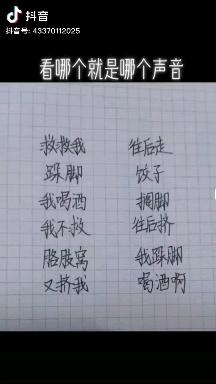 抖音
抖音号: 43370112025
看哪个就是哪个声音
救救我 往后走
跺脚 饺子
我喝酒 捆脚
我不救 往后挤
胳肢窝 我跺脚
又挤我 喝酒啊